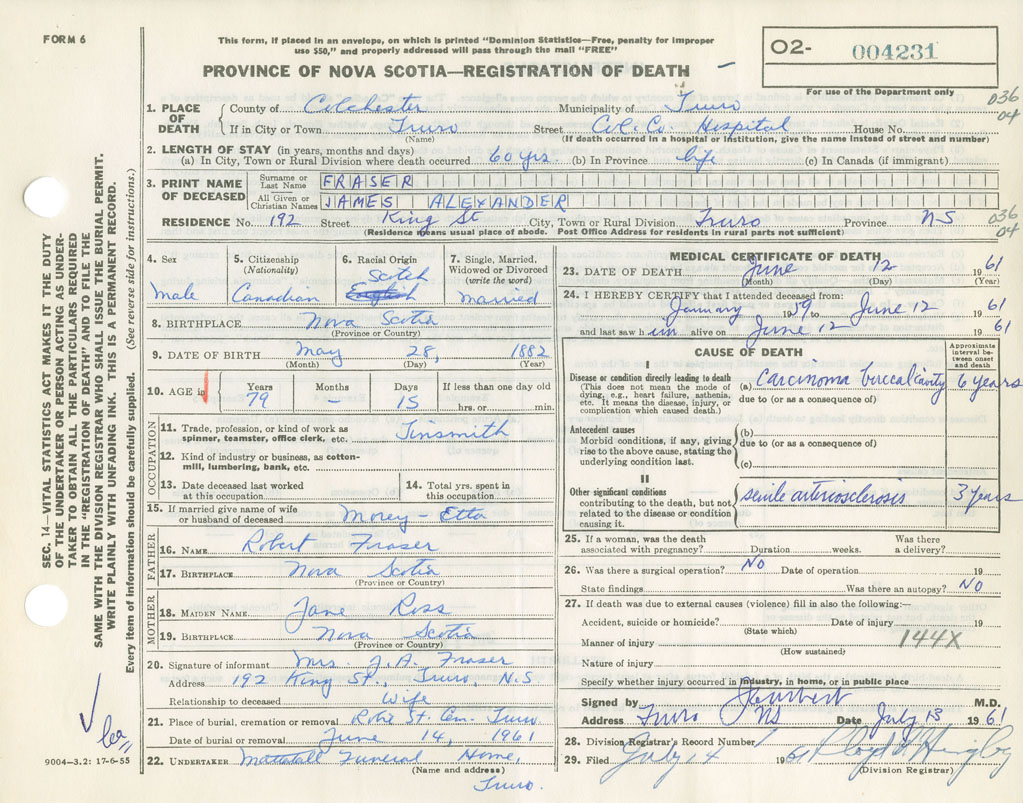 FORM 6
This form, if placed in an envelope, on which is printed "Dominion Statistics—Free, penalty for improper
use $50," and properly addressed will pass through the mail "FREE"
PROVINCE OF NOVA SCOTIA—REGISTRATION OF DEATH
O2- 004231
For use of the Department only
036
04
1. PLACE OF DEATH
County of Colchester Municipality of Truro
If in City or Town Truro Street Col. Co. Hospital House No.
(Name) (If death occurred in a hospital or institution, give the name instead of street and number)
2. LENGTH OF STAY (in years, months and days)
(a) In City, Town or Rural Division where death occurred 60 yrs. (b) In Province life (c) In Canada (if immigrant)
3. PRINT NAME OF DECEASED
Surname or Last Name FRASER
All Given or Christian Names JAMES ALEXANDER
RESIDENCE No. 192 Street King St City, Town or Rural Division Truro Province NS
(Residence means usual place of abode. Post Office Address for residents in rural parts not sufficient)
036
04
4. Sex
Male
5. Citizenship
(Nationality)
Canadian
6. Racial Origin
Scotch
English
7. Single, Married,
Widowed or Divorced
(write the word)
Married
8. BIRTHPLACE Nova Scotia
(Province or Country)
9. DATE OF BIRTH May 28, 1882
(Month) (Day) (Year)
10. AGE in
Years Months Days If less than one day old
79 — 15 hrs. or min.
OCCUPATION
11. Trade, profession, or kind of work as
spinner, teamster, office clerk, etc. Tinsmith
12. Kind of industry or business, as cotton-
mill, lumbering, bank, etc.
13. Date deceased last worked
at this occupation
14. Total yrs. spent in
this occupation
15. If married give name of wife
or husband of deceased Morey - Etta
FATHER
16. NAME Robert Fraser
17. BIRTHPLACE Nova Scotia
(Province or Country)
MOTHER
18. MAIDEN NAME Jane Ross
19. BIRTHPLACE Nova Scotia
(Province or Country)
20. Signature of informant Mrs. J.A. Fraser
Address 192 King St., Truro, N.S
Relationship to deceased Wife
21. Place of burial, cremation or removal Robie St. Cem. Truro
Date of burial or removal June 14, 1961
22. UNDERTAKER Mattatall Funeral Home,
(Name and address)
Truro.
MEDICAL CERTIFICATE OF DEATH
23. DATE OF DEATH June 12 1961
(Month) (Day) (Year)
24. I HEREBY CERTIFY that I attended deceased from:
January 1959 to June 12 1961
and last saw him alive on June 12 1961
CAUSE OF DEATH
Approximate
interval be-
tween onset
and death
I
Disease or condition directly leading to death
(This does not mean the mode of
dying, e.g., heart failure, asthenia,
etc. It means the disease, injury, or
complication which caused death.)
(a) Carcinoma buccal cavity 6 years
due to (or as a consequence of)
Antecedent causes
Morbid conditions, if any, giving
rise to the above cause, stating the
underlying condition last.
(b)
due to (or as a consequence of)
(c)
II
Other significant conditions
contributing to the death, but not
related to the disease or condition
causing it.
senile arteriosclerosis 3 years
25. If a woman, was the death
associated with pregnancy? Duration weeks. Was there
a delivery?
26. Was there a surgical operation? NO Date of operation 19
State findings Was there an autopsy? NO
27. If death was due to external causes (violence) fill in also the following:—
Accident, suicide or homicide? Date of injury 19
(State which)
Manner of injury
(How sustained)
144X
Nature of injury
Specify whether injury occurred in industry, in home, or in public place
Signed by M.D.
Address Truro NS Date July 13 1961
28. Division Registrar's Record Number
29. Filed July 14 1961
(Division Registrar)
SEC. 14—VITAL STATISTICS ACT MAKES IT THE DUTY
OF THE UNDERTAKER OR PERSON ACTING AS UNDER-
TAKER TO OBTAIN ALL THE PARTICULARS REQUIRED
IN THE "REGISTRATION OF DEATH" AND TO FILE THE
SAME WITH THE DIVISION REGISTRAR WHO SHALL ISSUE THE BURIAL PERMIT.
WRITE PLAINLY WITH UNFADING INK. THIS IS A PERMANENT RECORD.
Every item of information should be carefully supplied. (See reverse side for instructions.)
9004-3.2: 17-6-55